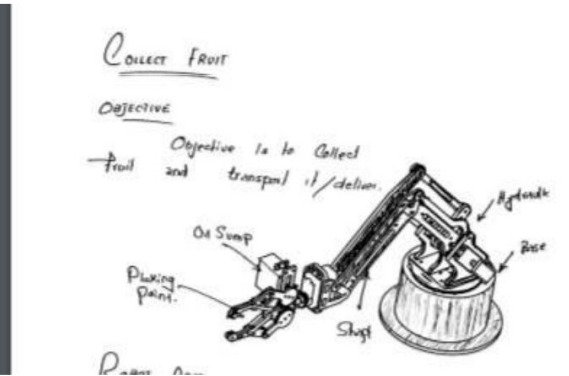 COLLECT FRUIT
OBJECTIVE
Objective is to Collect
fruit and transport it/deliver.
Hydraulic
Base
Oil Sump
Point.
Shaft
ROBOT